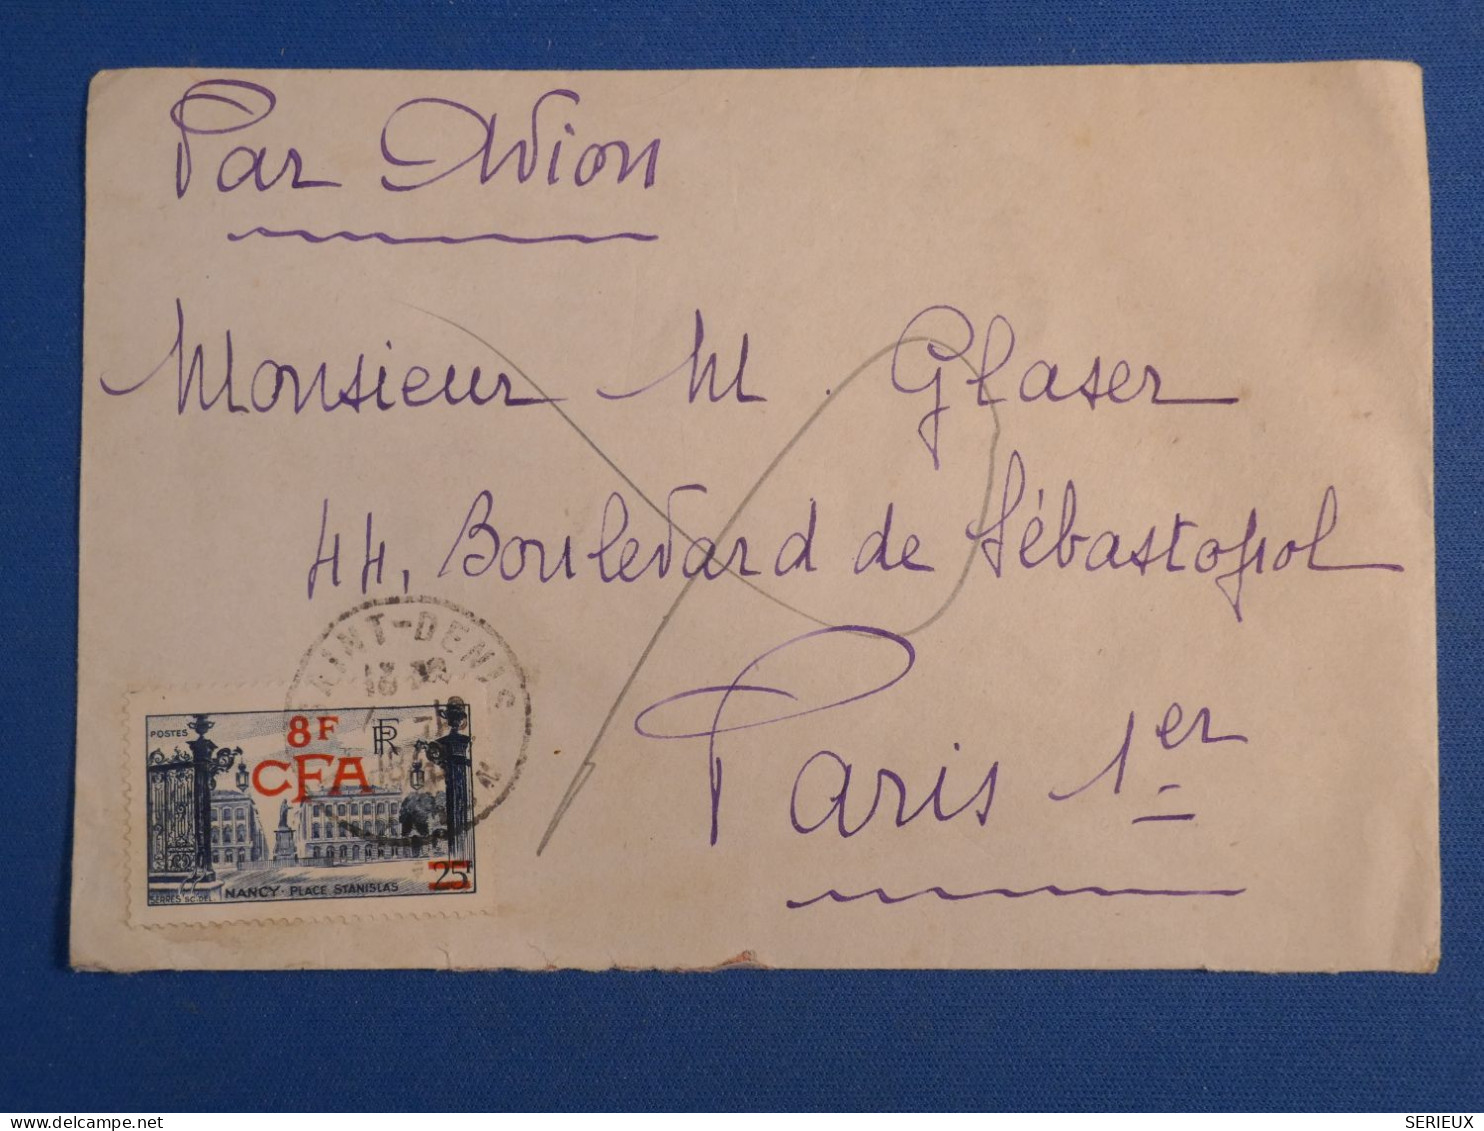 Par Avion
Monsieur M. Glaser
44, Boulevard de Sébastopol
Paris 1er
SAINT-DENIS
POSTES
8F
RF
CFA
25F
NANCY-PLACE STANISLAS
SERIEUX